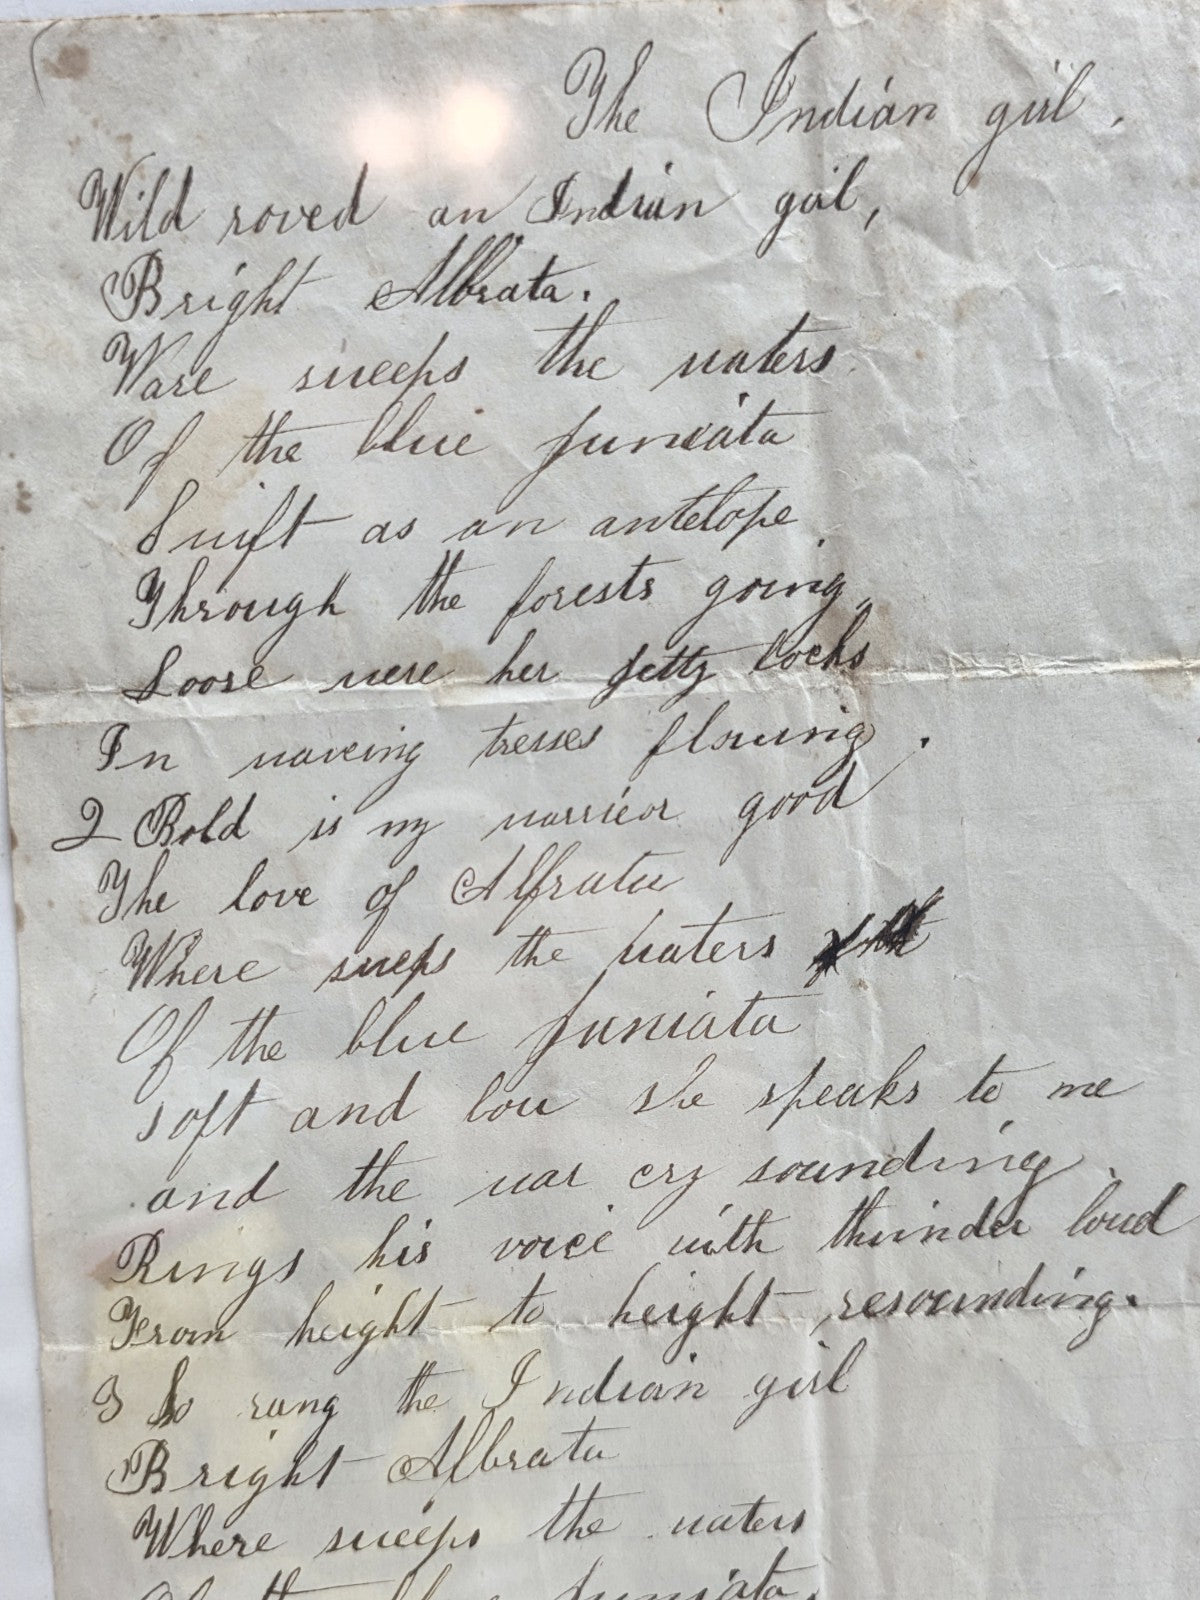 The Indian girl.
Wild roved an Indian girl,
Bright Albrata.
Ware sweeps the waters.
Of the blue juniata
Swift as an antelope.
Through the forests going,
Loose were her jetty locks
In waveing tresses flowing.
2 Bold is my warrior good
The love of Alfrata
Where sweps the waters
Of the blue juniata
soft and low she speaks to me
and the war cry sounding.
Rings his voice with thunder loud
From height to height resounding.
3 So rang the Indian girl
Bright Albrata
Where sweeps the waters
Of the blue juniata.